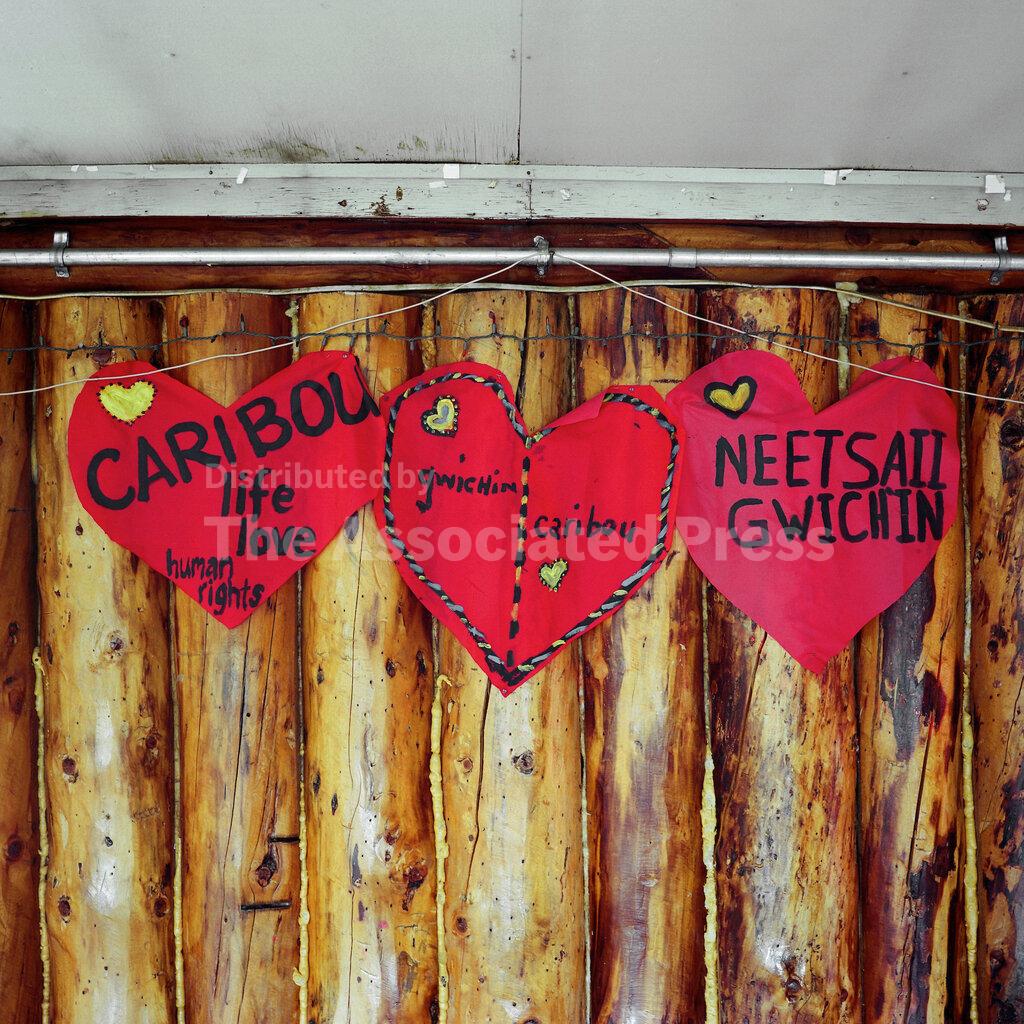 CARIBOU
life
love
human
rights
gwichin
caribou
NEETSAII
GWICH'IN
Distributed by
The Associated Press